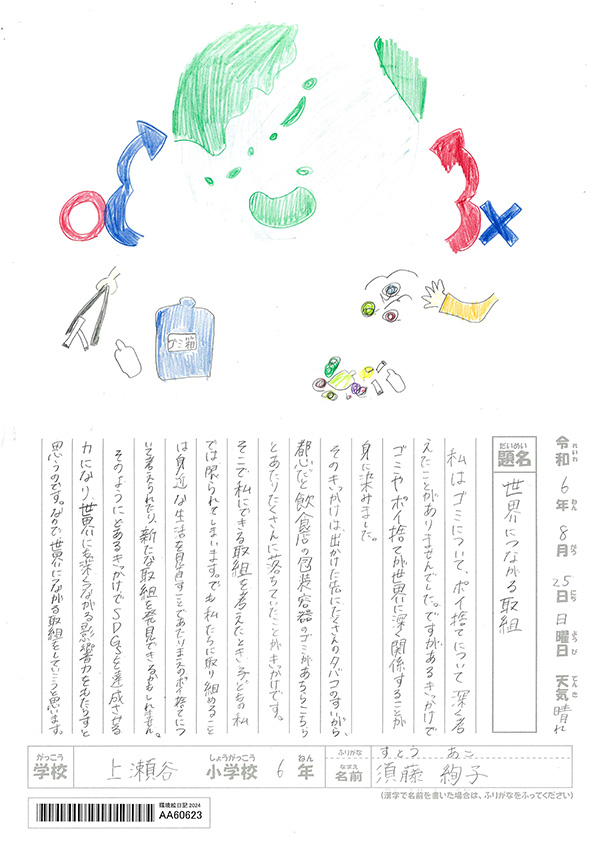 ゴミ箱
令和6年8月25日日曜日 天気晴れ
れいわ ねん がつ にち ようび てんき
だいめい
題名 世界につながる取組
私はゴミについて、ポイ捨てについて深く考
えたことがありませんでした。ですがあるきっかけで
ゴミやポイ捨てが世界に深く関係することが
身に染みました。
そのきっかけは、出かけた先にたくさんのタバコのすいがら、
都心だと飲食店の包装容器のゴミがあちらこちら
とあたりたくさんに落ちていたことがきっかけです。
そこで私にできる取組を考えたとき、子どもの私
では限られてしまいます。でも私たちに取り組めること
は身近な生活を見直すことであたりまえのポイ捨てにつ
いて考えられたり、新たな取組を発見できるかもしれません。
そのようにとあるきっかけでSDGsを達成させる
力になり、世界にも深くつながる影響力をもたらすと
思うのです。なので世界につながる取組をしていこうと思います。
がっこう しょうがっこう ねん
学校 上瀬谷 小学校 6年
ふりがな すとう あこ
なまえ
名前 須藤 絢子
(漢字で名前を書いた場合は、ふりがなをふってください)
環境絵日記2024
AA60623